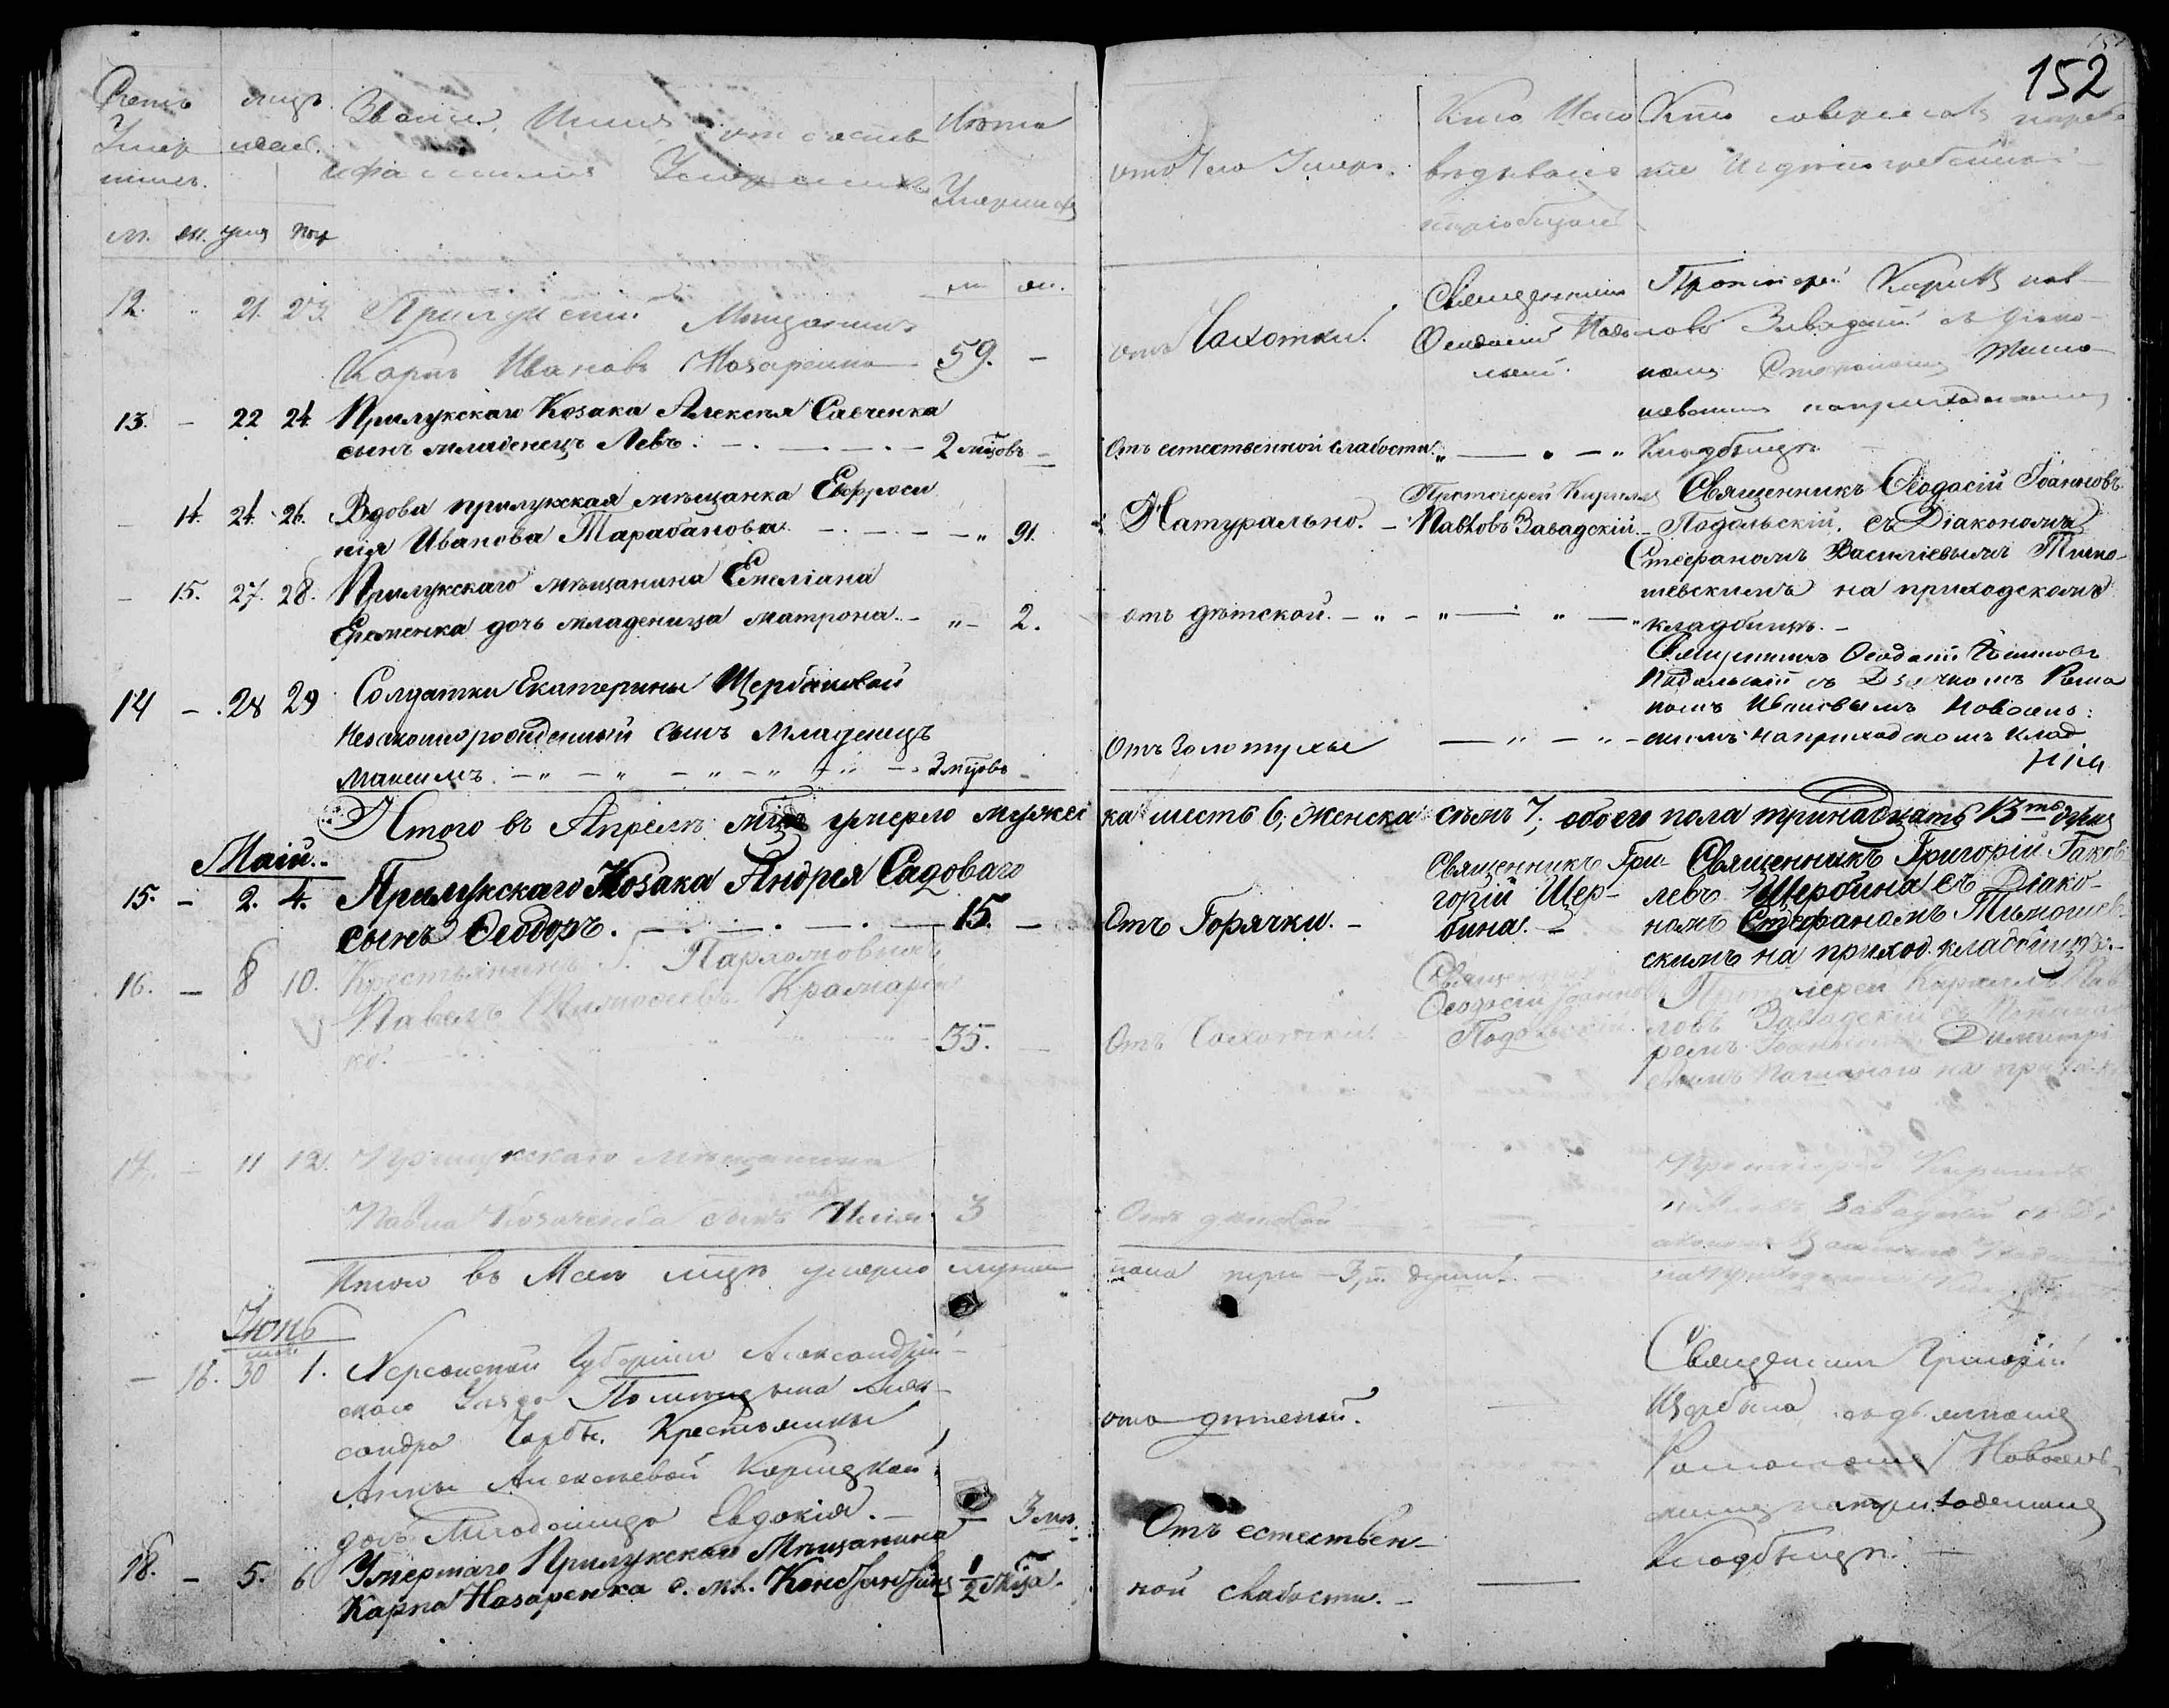 152
Счетъ
Умер
шихъ.
мцъ
Званіе, Имя, отчество
и фамилія Умершихъ
Лѣта
Умершихъ
м. ж.
отъ чего Умеръ.
Кто Испо
вѣдывалъ
пріобщалъ
Кто совершалъ погребе
ніе и гдѣ погребены
12. " 21. 23 Прилукскій Мѣщанинъ
Карпъ Ивановъ Назаренко 59. -
отъ Чахотки.
Священникъ
Ѳеодосій Подо
льскій.
Протоіерей Кириллъ Пав-
ловъ Завадскій съ Діако-
номъ Стефаномъ Тимо-
шевскимъ на приходскомъ
Кладбищѣ.
13. - 22 24 Прилукскаго Козака Алексѣя Савченка
сынъ младенецъ Левъ. - . - . - 2 мцовъ -
Отъ естественной слабости. " - " - "
- 14. 24. 26. Вдова прилукская мѣщанка Евфроси
нія Иванова Тарабанова. - . - . - " 91.
Натурально. -
Протоіерей Кириллъ
Павловъ Завадскій. -
Священникъ Ѳеодосій Іоанновъ
Подольскій. съ Діакономъ
Стефаномъ Василіевымъ Тимо-
шевскимъ на приходскомъ
кладбищѣ. -
- 15. 27. 28. Прилукскаго мѣщанина Емеліана
Еременка дочь младеница Матрона. - " - 2.
отъ дѣтской. - " - " - " -
14 - 28 29 Солдатки Екатерины Щербаковой
Незаконнорожденный сынъ Младенецъ
Максимъ. - " - " - " - " - " - 3 мцовъ -
Отъ Золотухи - " - " -
Священникъ Ѳеодосій Іоанновъ
Подольскій съ Дьячкомъ Рома
номъ Ивановымъ Новосель:
скимъ на приходскомъ клад
Итого въ Апрелѣ мцѣ умерло мужес
ка шесть 6, женска семь 7, обоего пола тринадцать 13ть душъ
Маій..
15. - 2. 4. Прилукскаго Козака Андрея Садоваго
сынъ Ѳеодоръ. - . - . - . - 15. -
Отъ Горячки. -
Священникъ Гри-
горій Щер-
бина. -
Священникъ Григорій Іаков
левъ Щербина съ Діако-
номъ Стефаномъ Тимошев-
скимъ на приход. кладбищѣ. -
16. - 8 10. Крестьянинъ Г. Парламовыхъ
Павелъ Тимоѳеевъ Крамарен
ко. 35. -
Отъ Чахотки.
Священникъ
Ѳеодосій Іоанновъ
Подольскій.
Протоіерей Кириллъ Пав
ловъ Завадскій съ Понома
ремъ Димитрі
евымъ на приход.
17. - 11 12. Прилукскаго Мѣщанина
Павла Козаченка сынъ Илія. 3
Отъ дѣтской
Протоіерей Кириллъ
Павловъ Завадскій съ Ді
акономъ
на приходскомъ
Итого въ Маѣ мцѣ умерло мужеска
пола три - 3 р. души. -
Іюнь
- 16. 30 1. Херсонской Губерніи Александрій-
скаго Уѣзда Помѣщика Алек-
сандра Чорбы. Крестьянки
Анны Алексѣевой Корицкой
дочь Младеница Евдокія. - - 3 мц.
отъ дѣтской.
Священникъ Григорій
Щербина съ дьячкомъ
Романомъ Новосель-
скимъ на приходскомъ
Кладбищѣ. -
18. - 5. 6 Умершаго Прилукскаго Мѣщанина
Карпа Назаренка с. мл. Константинъ 1/2 мца.
Отъ естествен-
ной слабости. -